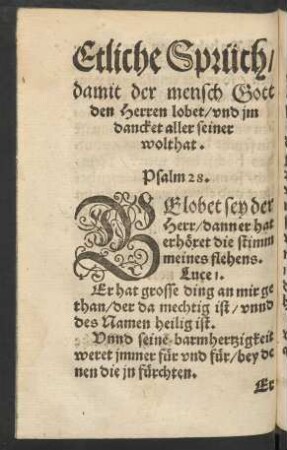 Etliche Sprüch/
damit der mensch Gott
den Herren lobet/vnd jm
dancket aller seiner
wolthat.
Psalm 28.
GElobet sey der
Herr/dann er hat
erhöret die stimm
meines flehens.
Luce 1.
Er hat grosse ding an mir ge
than/der da mechtig ist/vnnd
des Namen heilig ist.
Vnnd seine barmhertzigkeit
weret jmmer für vnd für/bey de
nen die jn fürchten.
Er